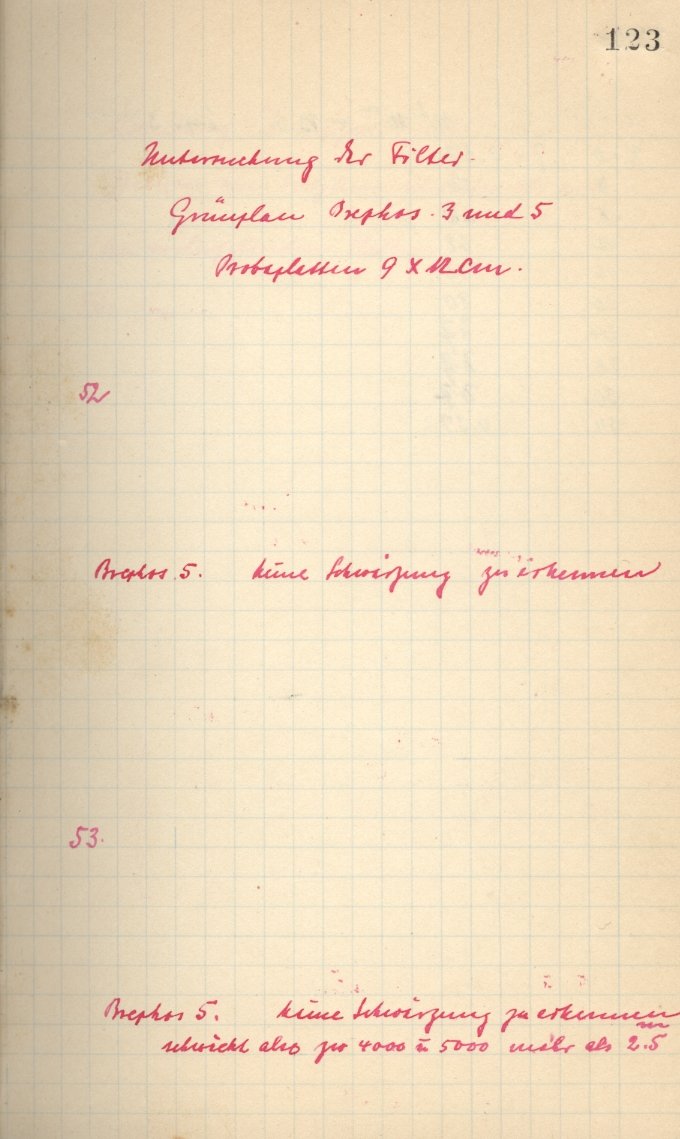 123
Untersuchung der Filter.
Grünplan Brephos. 3 und 5
Probeplatten 9 x 12 Cm.
52
Brephos 5. keine Schwärzung zu erkennen
53.
Brephos 5. keine Schwärzung zu erkennen
schwächt also zw 4000 u 5000 mehr als 2.5 m